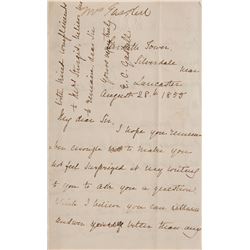 Mrs Gaskell
with kind compliments
to Mr Sturgis, believe me
to remain, dear Sir
Yours very truly
E. C. Gaskell
Tower,
Silverdale
near
Lancaster
August 28th 1855
My dear Sir,
I hope you remember
me enough to make you
not feel surprized at my writing
to you to ask you a question
which I believe you can
answer better than any